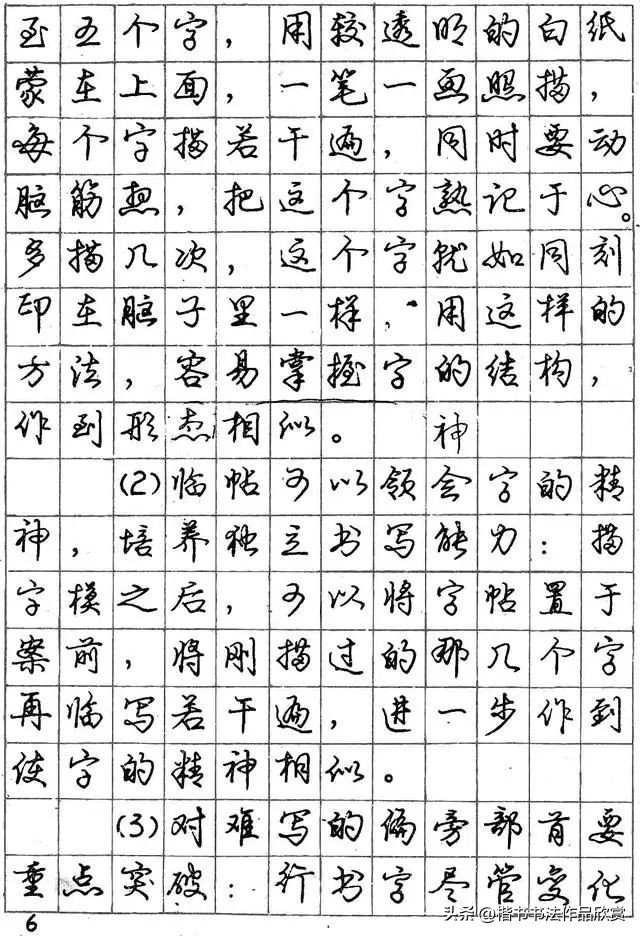 至五个字，用较透明的白纸
蒙在上面，一笔一画照描，
每个字描若干遍，同时要动
脑筋想，把这个字熟记于心。
多描几次，这个字就如同刻
印在脑子里一样，用这样的
方法，容易掌握字的结构，
作到形态相似。 神
(2)临帖可以领会字的精
神，培养独立书写能力：描
字模之后，可以将字帖置于
案前，将刚描过的那几个字
再临写若干遍，进一步作到
使字的精神相似。
(3)对难写的偏旁部首要
重点突破：行书字尽管变化
6
头条@楷书书法作品欣赏